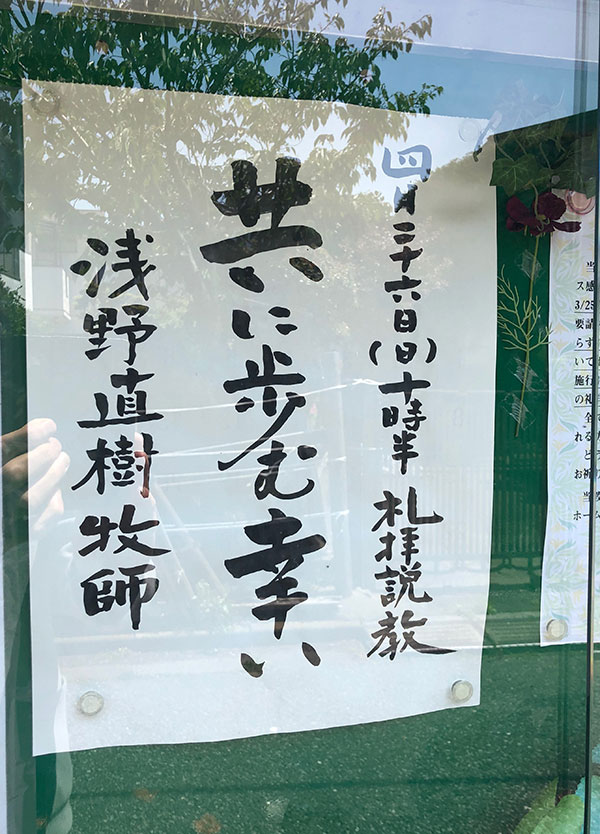 四月二十六日(日)十時半 礼拝説教
共に歩む幸い
浅野直樹牧師
当
ス感
要請
らず
いて
施行
の礼
全
れる
ど
お祈
当
ホーム